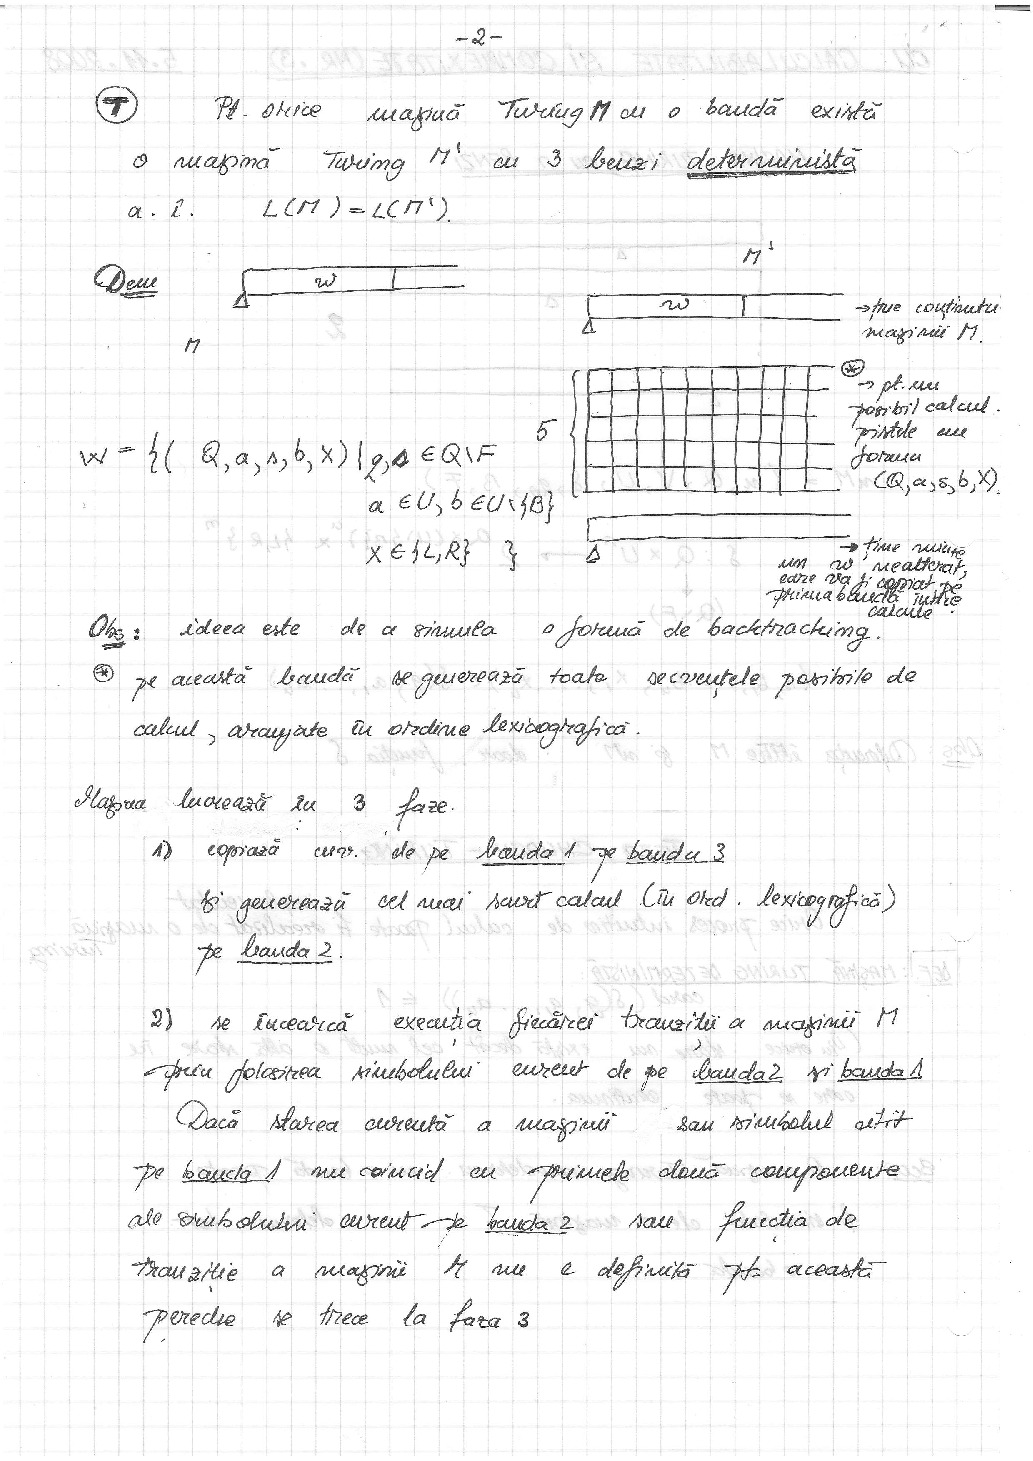 -2-
T Pt. orice mașină Turing M cu o bandă există
o mașină Turing M' cu 3 benzi deterministă
a. î. L(M) = L(M').
Dem
w
M
M'
w
→ ține conținutul
mașinii M.
5
* → pt. un
posibil calcul.
pistele au
forma
(Q,a,s,b,X).
W = {( Q,a,s,b,X) | q,s ∈ Q\F
a ∈ U, b ∈ U\{B}
X ∈ {L,R} }
→ ține minte
un w nealterat,
care va fi copiat pe
prima bandă între
calcule.
Obs: ideea este de a simula o formă de backtraching.
* pe această bandă se generează toate secvențele posibile de
calcul, aranjate în ordine lexicografică.
Mașina lucrează în 3 faze.
1) copiază cuv. de pe banda 1 pe banda 3
și generează cel mai scurt calcul (în ord. lexicografică)
pe banda 2.
2) se încearcă execuția fiecărei tranziții a mașinii M
prin folosirea simbolului curent de pe banda 2 și banda 1
Dacă starea curentă a mașinii sau simbolul citit
pe banda 1 nu coincid cu primele două componente
ale simbolului curent pe banda 2 sau funcția de
tranziție a mașinii M nu e definită pt. această
pereche se trece la faza 3